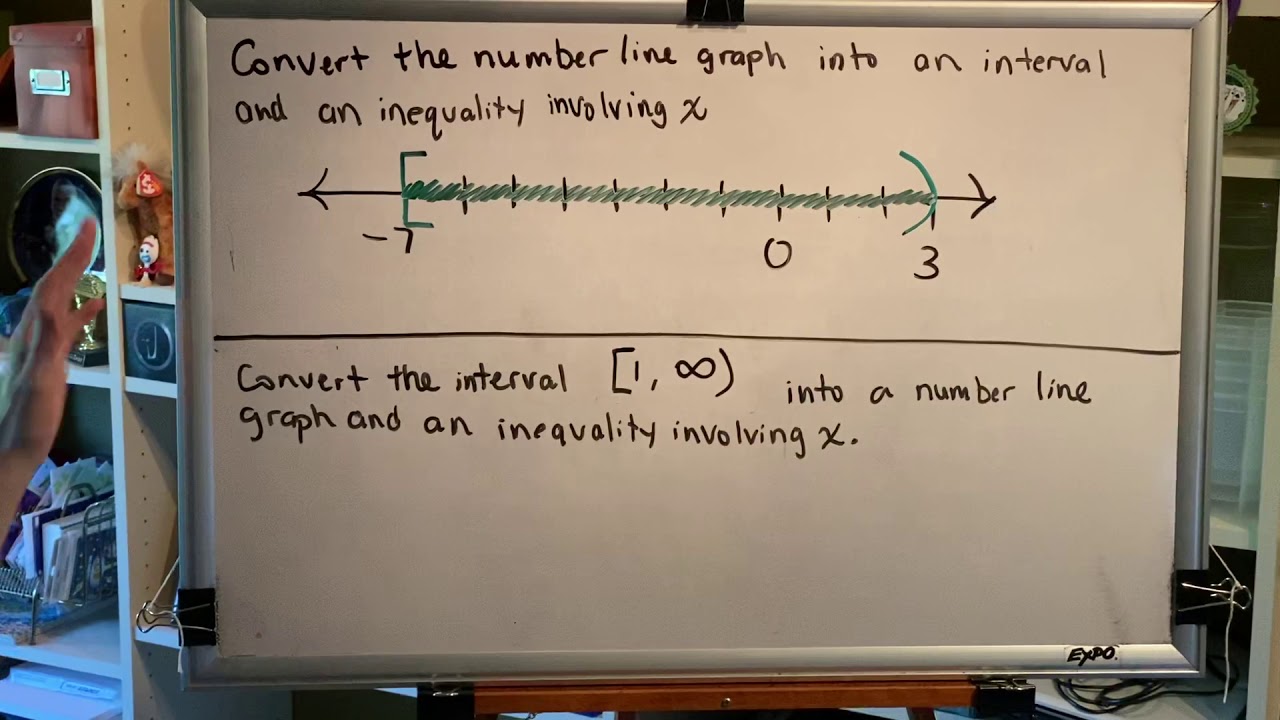 Convert the number line graph into an interval
and an inequality involving x
-7 0 3
Convert the interval [1, ∞) into a number line
graph and an inequality involving x.
EXPO